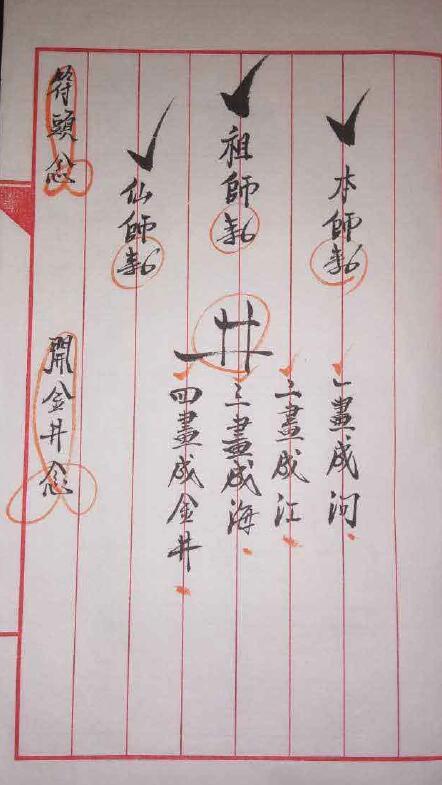 本師勅
祖師勅
仙師勅
符頭念
井
一畫成河
二畫成江
三畫成海
四畫成金井
開金井念